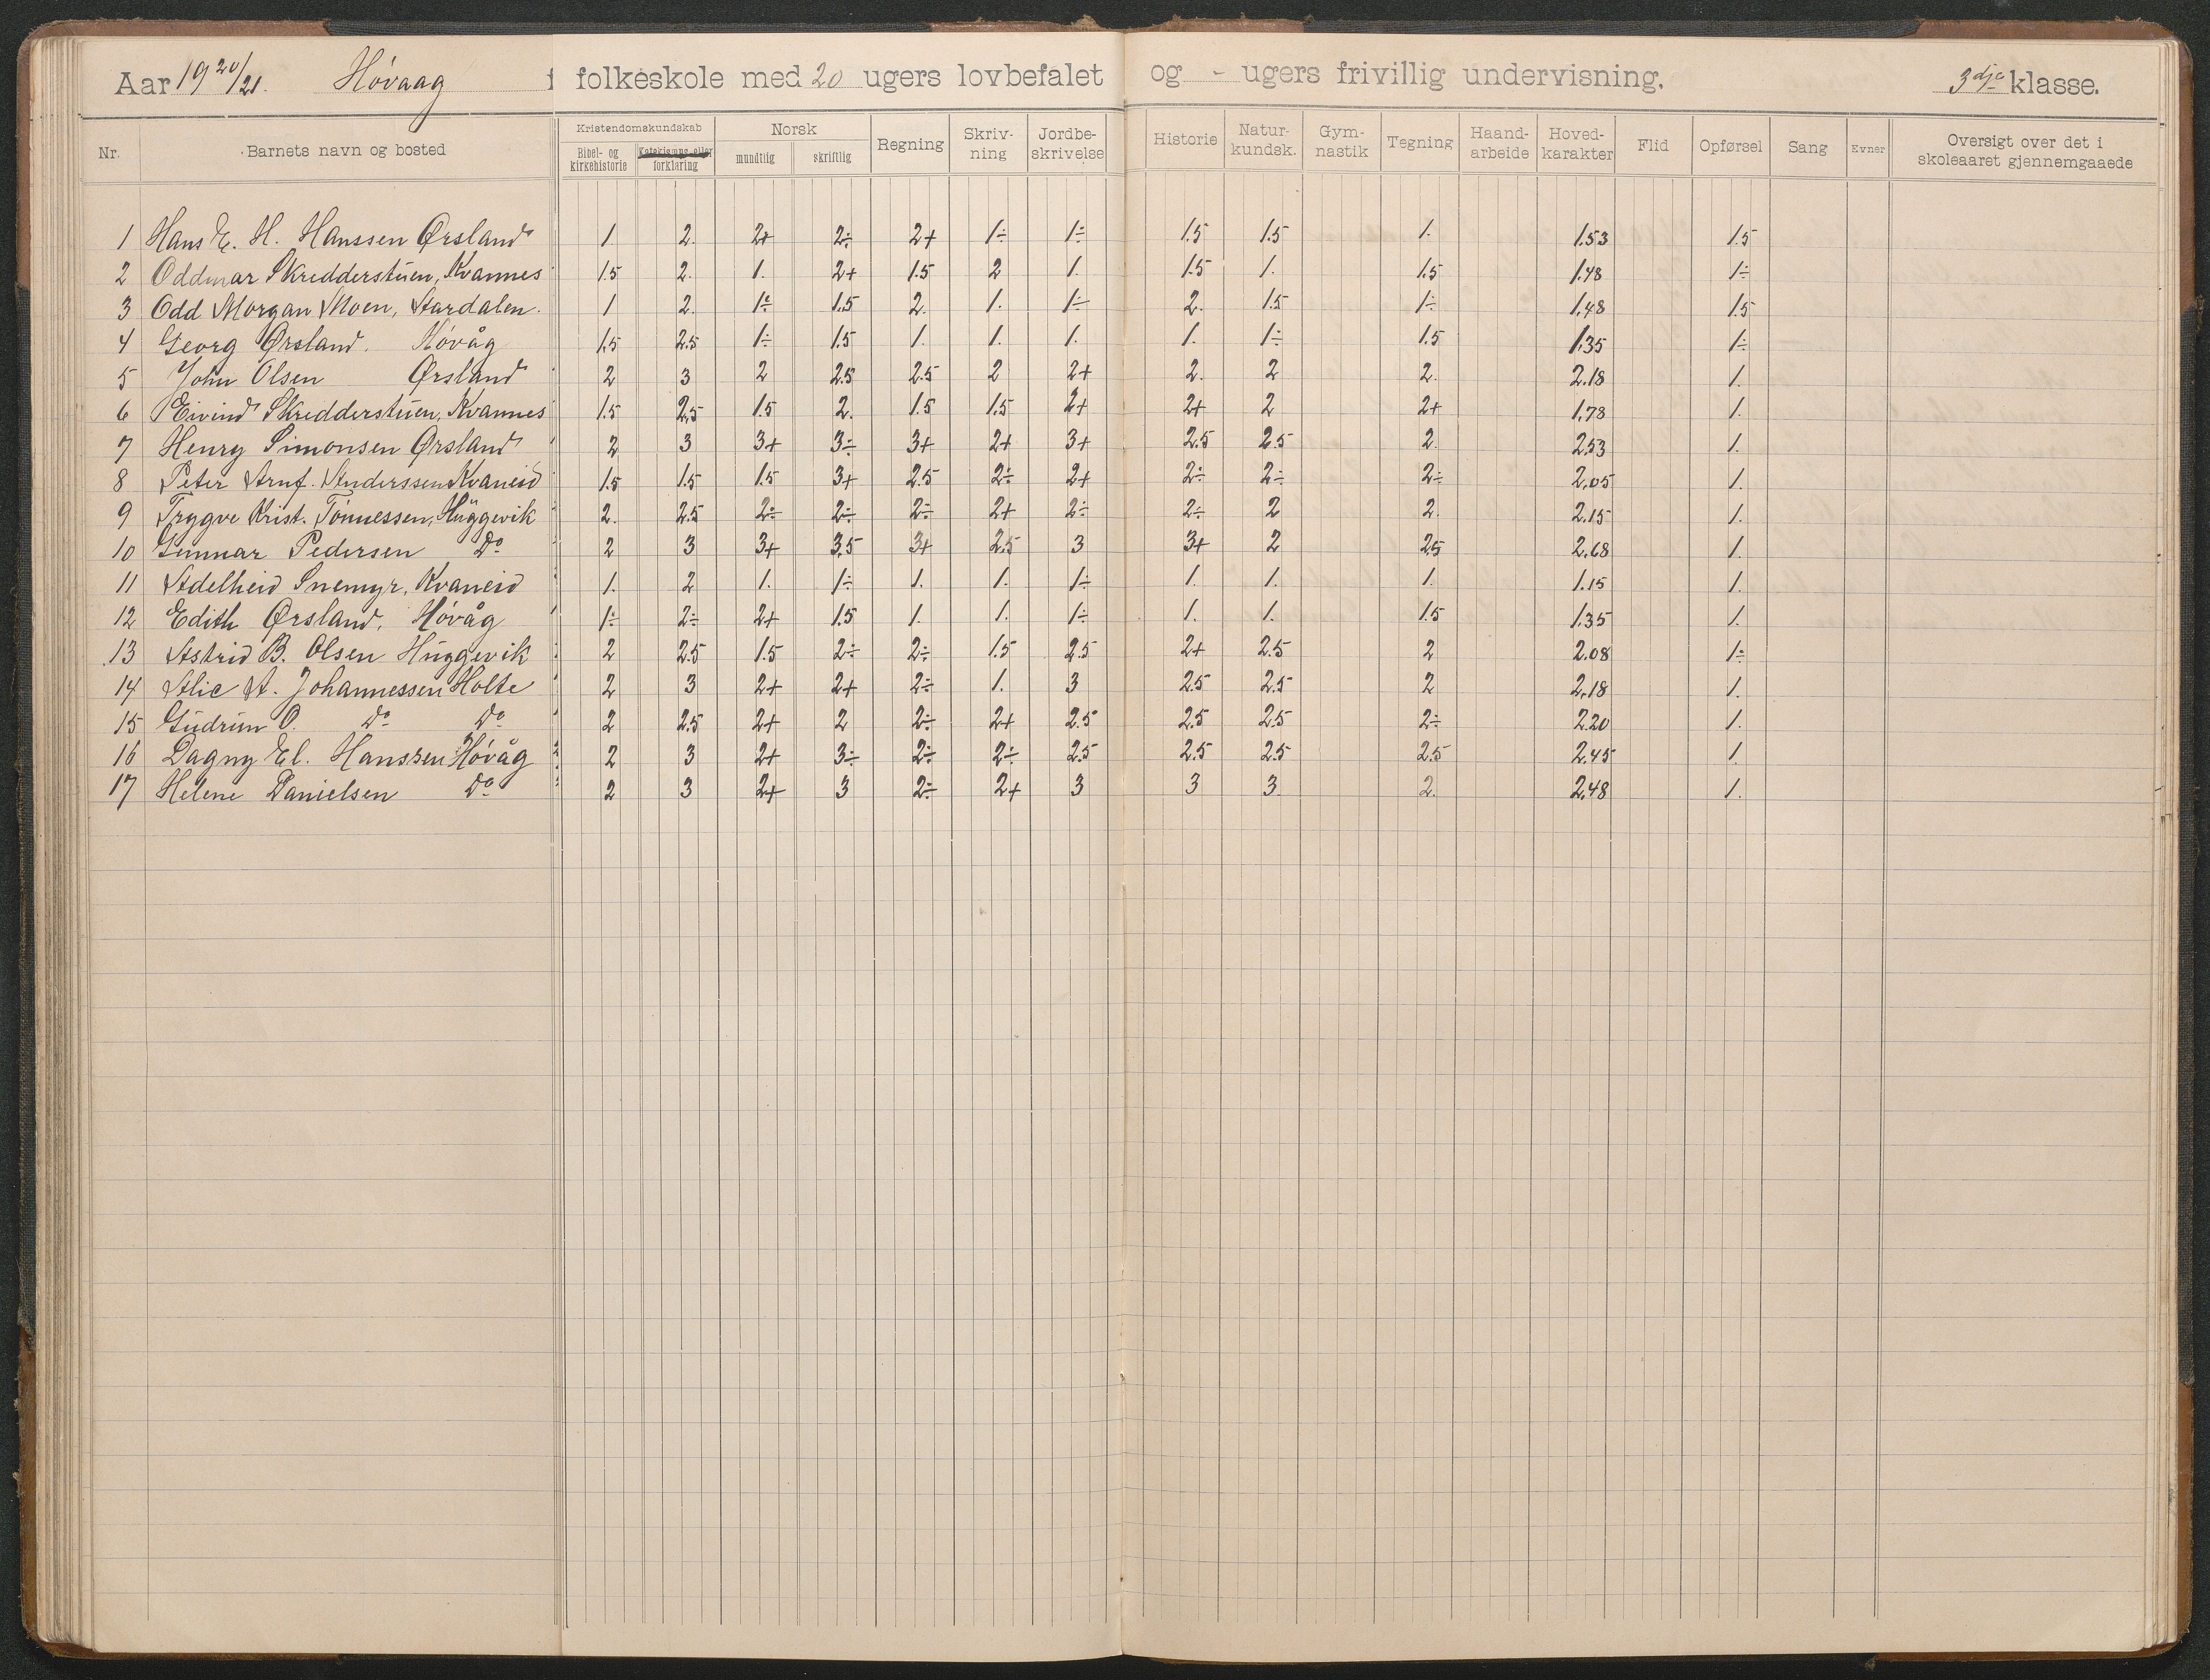 Aar 1920/21. Høvaag folkeskole med 20 ugers lovbefalet og - ugers frivillig undervisning. 3dje klasse.
Nr. Barnets navn og bosted Kristendomskundskab Bibel- og kirkehistorie Katekismus eller forklaring Norsk mundtlig skriftlig Regning Skriv-ning Jordbe-skrivelse Historie Natur-kundsk. Gym-nastik Tegning Haand-arbeide Hoved-karakter Flid Opførsel Sang Evner Oversigt over det i skoleaaret gjennemgaaede
1 Hans E. H. Hanssen Ørsland 1 2. 2+ 2÷ 2+ 1÷ 1÷ 1.5 1.5 1. 1.53 1.5
2 Oddmar Skredderstuen, Kvannes 1.5 2. 1. 2+ 1.5 2 1. 1.5 1. 1.5 1.48 1÷
3 Odd Morgan Moen, Aardalen. 1 2. 1÷ 1.5 2. 1. 1÷ 2. 1.5 1÷ 1.48 1.5
4 Georg Ørsland. Høvåg 1.5 2.5 1÷ 1.5 1. 1. 1. 1. 1÷ 1.5 1.35 1÷
5 John Olsen Ørsland 2 3 2 2.5 2.5 2 2+ 2. 2 2. 2.18 1.
6 Eivind Skredderstuen, Kvannes 1.5 2.5 1.5 2. 1.5 1.5 2+ 2+ 2 2+ 1.78 1.
7 Henry Simonsen Ørsland 2 3 3+ 3÷ 3+ 2+ 3+ 2.5 2.5 2. 2.53 1.
8 Peter Arnf. Anderssen Kvaneid 1.5 1.5 1.5 3+ 2.5 2÷ 2+ 2÷ 2÷ 2÷ 2.05 1.
9 Trygve Krist. Tønnessen, Huggevik 2. 2.5 2÷ 2÷ 2÷ 2+ 2÷ 2÷ 2 2. 2.15 1.
10 Gunnar Pedersen Do 2 3 3+ 3.5 3+ 2.5 3 3+ 2 2.5 2.68 1.
11 Adelheid Snemyr, Kvaneid 1. 2 1. 1÷ 1. 1. 1÷ 1. 1. 1. 1.15 1.
12 Edith Ørsland, Høvåg 1÷ 2÷ 2+ 1.5 1. 1. 1÷ 1. 1. 1.5 1.35 1.
13 Astrid B. Olsen Huggevik 2 2.5 1.5 2÷ 2÷ 1.5 2.5 2+ 2.5 2 2.08 1÷
14 Alic A. Johannessen Holte 2 3 2+ 2+ 2÷ 1. 3 2.5 2.5 2 2.18 1.
15 Gudrun O. Do Do 2 2.5 2+ 2 2÷ 2+ 2.5 2.5 2.5 2÷ 2.20 1.
16 Dagny El. Hanssen Høvåg 2 3 2+ 3÷ 2÷ 2÷ 2.5 2.5 2.5 2.5 2.45 1.
17 Helene Danielsen Do 2 3 2+ 3 2÷ 2+ 3 3 3. 2. 2.48 1.